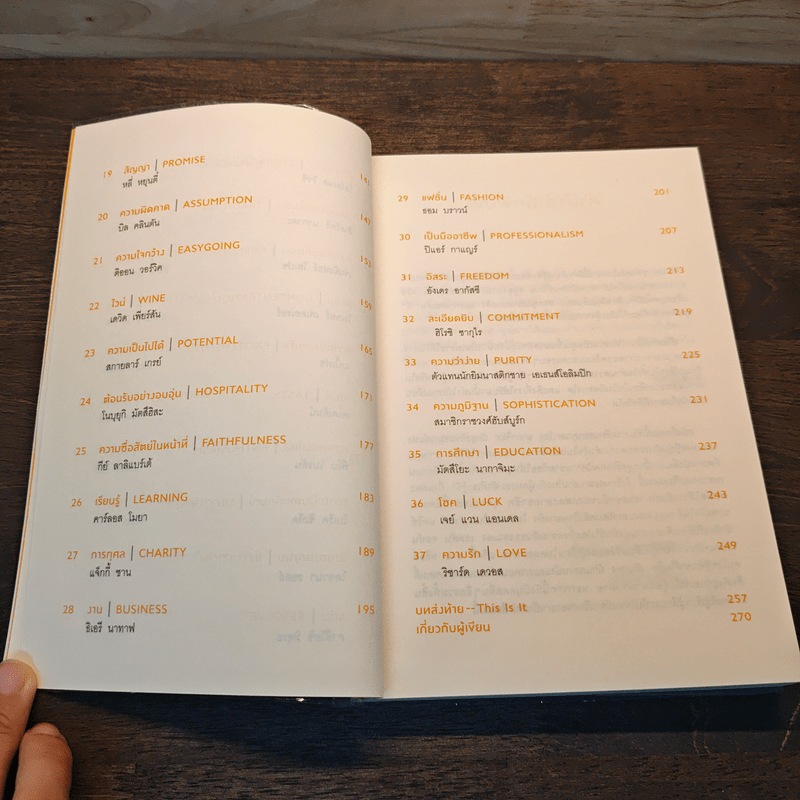 19 สัญญา | PROMISE 141
หลี่ หยุนตี้
20 ความผิดคาด | ASSUMPTION 147
บิล คลินตัน
21 ความใจกว้าง | EASYGOING 153
ดิออน วอร์วิค
22 ไวน์ | WINE 159
เดวิด เพียร์สัน
23 ความเป็นไปได้ | POTENTIAL 165
สกายลาร์ เกรย์
24 ต้อนรับอย่างอบอุ่น | HOSPITALITY 171
โนบุยูกิ มัตสึฮิสะ
25 ความซื่อสัตย์ในหน้าที่ | FAITHFULNESS 177
กีย์ ลาลิแบร์เต้
26 เรียนรู้ | LEARNING 183
คาร์ลอส โมยา
27 การกุศล | CHARITY 189
แจ็กกี้ ชาน
28 งาน | BUSINESS 195
ธิเอรี นาทาฟ
29 แฟชั่น | FASHION 201
ธอม บราวน์
30 เป็นมืออาชีพ | PROFESSIONALiSM 207
ปิแอร์ กาแญร์
31 อิสระ | FREEDOM 213
อังเดร อากัสซี
32 ละเอียดยิบ | COMMITMENT 219
ฮิโรชิ ซากุไร
33 ความว่าง่าย | PURITY 225
ตัวแทนนักยิมนาสติกชาย เอเธนส์โอลิมปิก
34 ความภูมิฐาน | SOPHISTICATION 231
สมาชิกราชวงศ์ฮับส์บูร์ก
35 การศึกษา | EDUCATION 237
มัตสึโยะ นากาจิมะ
36 โชค | LUCK 243
เจย์ แวน แอนเดล
37 ความรัก | LOVE 249
ริชาร์ด เดวอส
บทส่งท้าย -- This Is It 257
เกี่ยวกับผู้เขียน 270